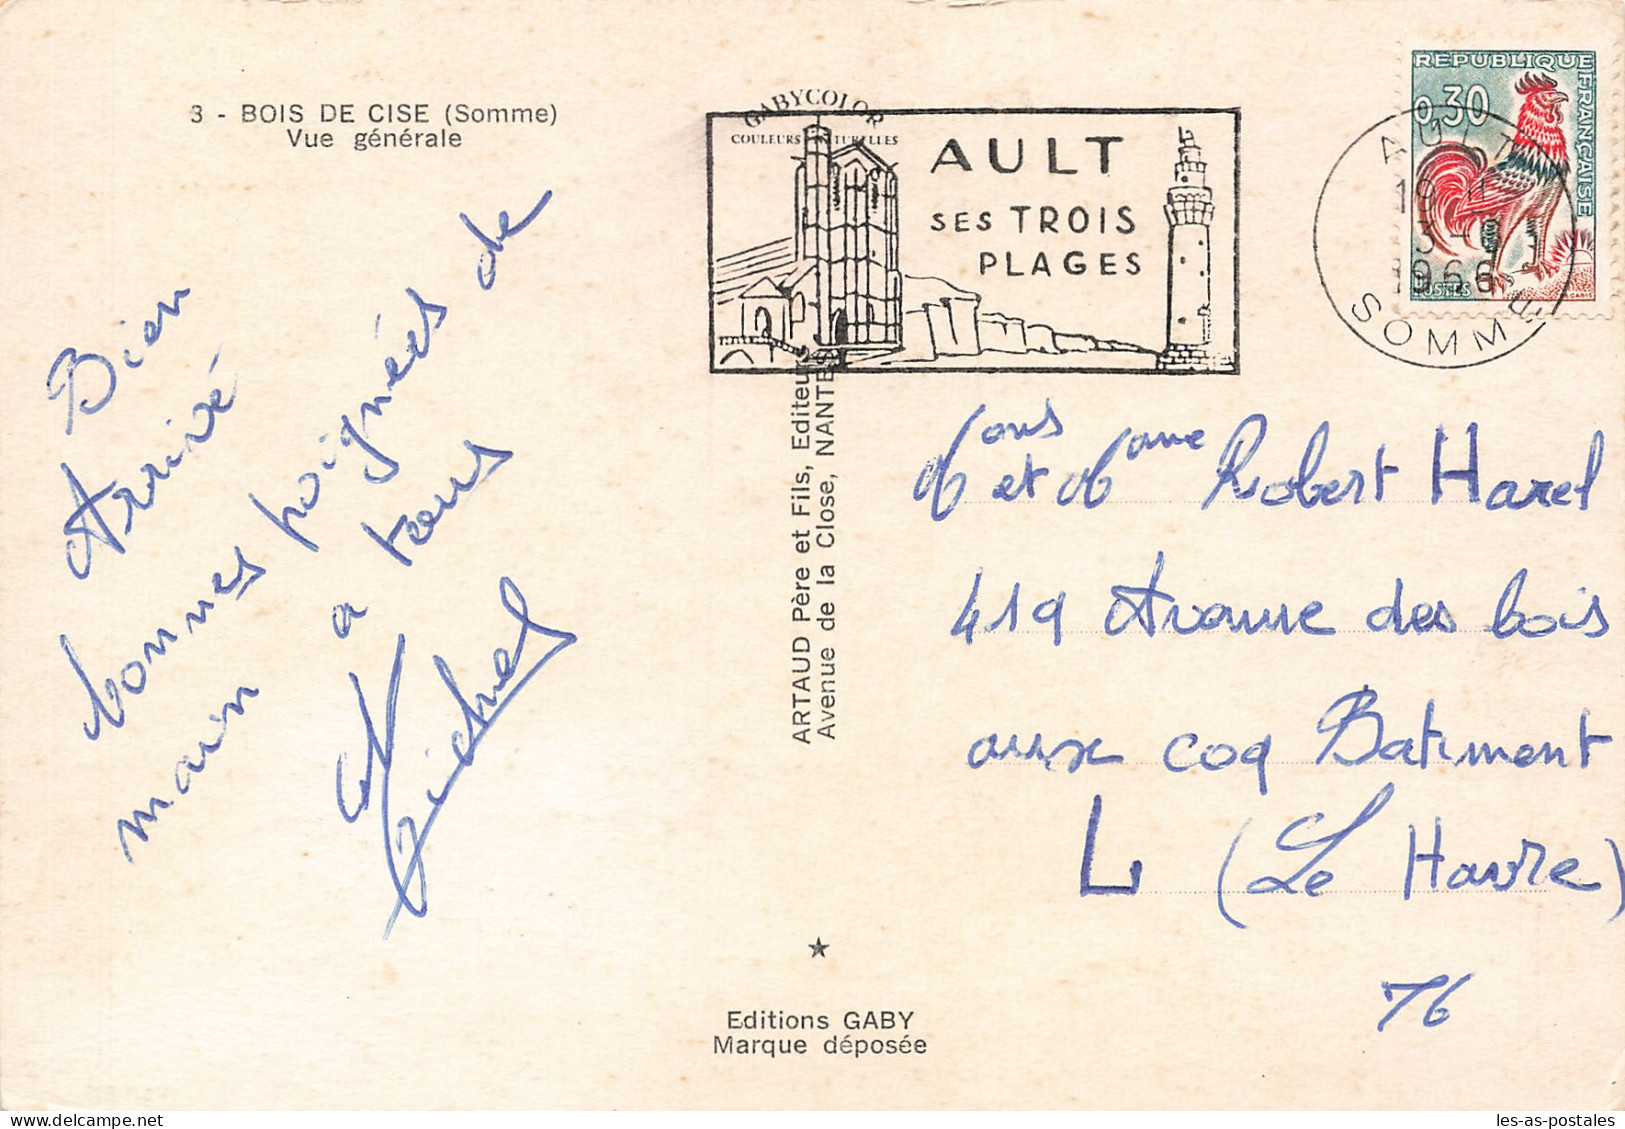 3 - BOIS DE CISE (Somme)
Vue générale
Bien
Arrivé
bonnes poignées de
main a tous
Michel
GABYCOLOR
COULEURS NATURELLES
AULT
SES TROIS
PLAGES
REPUBLIQUE
FRANÇAISE
0,30
POSTES
AULT
1966
SOMME
ARTAUD Père et Fils, Editeurs
Avenue de la Close, NANTES
Mons et Mame Robert Harel
419 Avenue des bois
aux coq Batiment
L (Le Havre)
76
Editions GABY
Marque déposée
les-as-postales